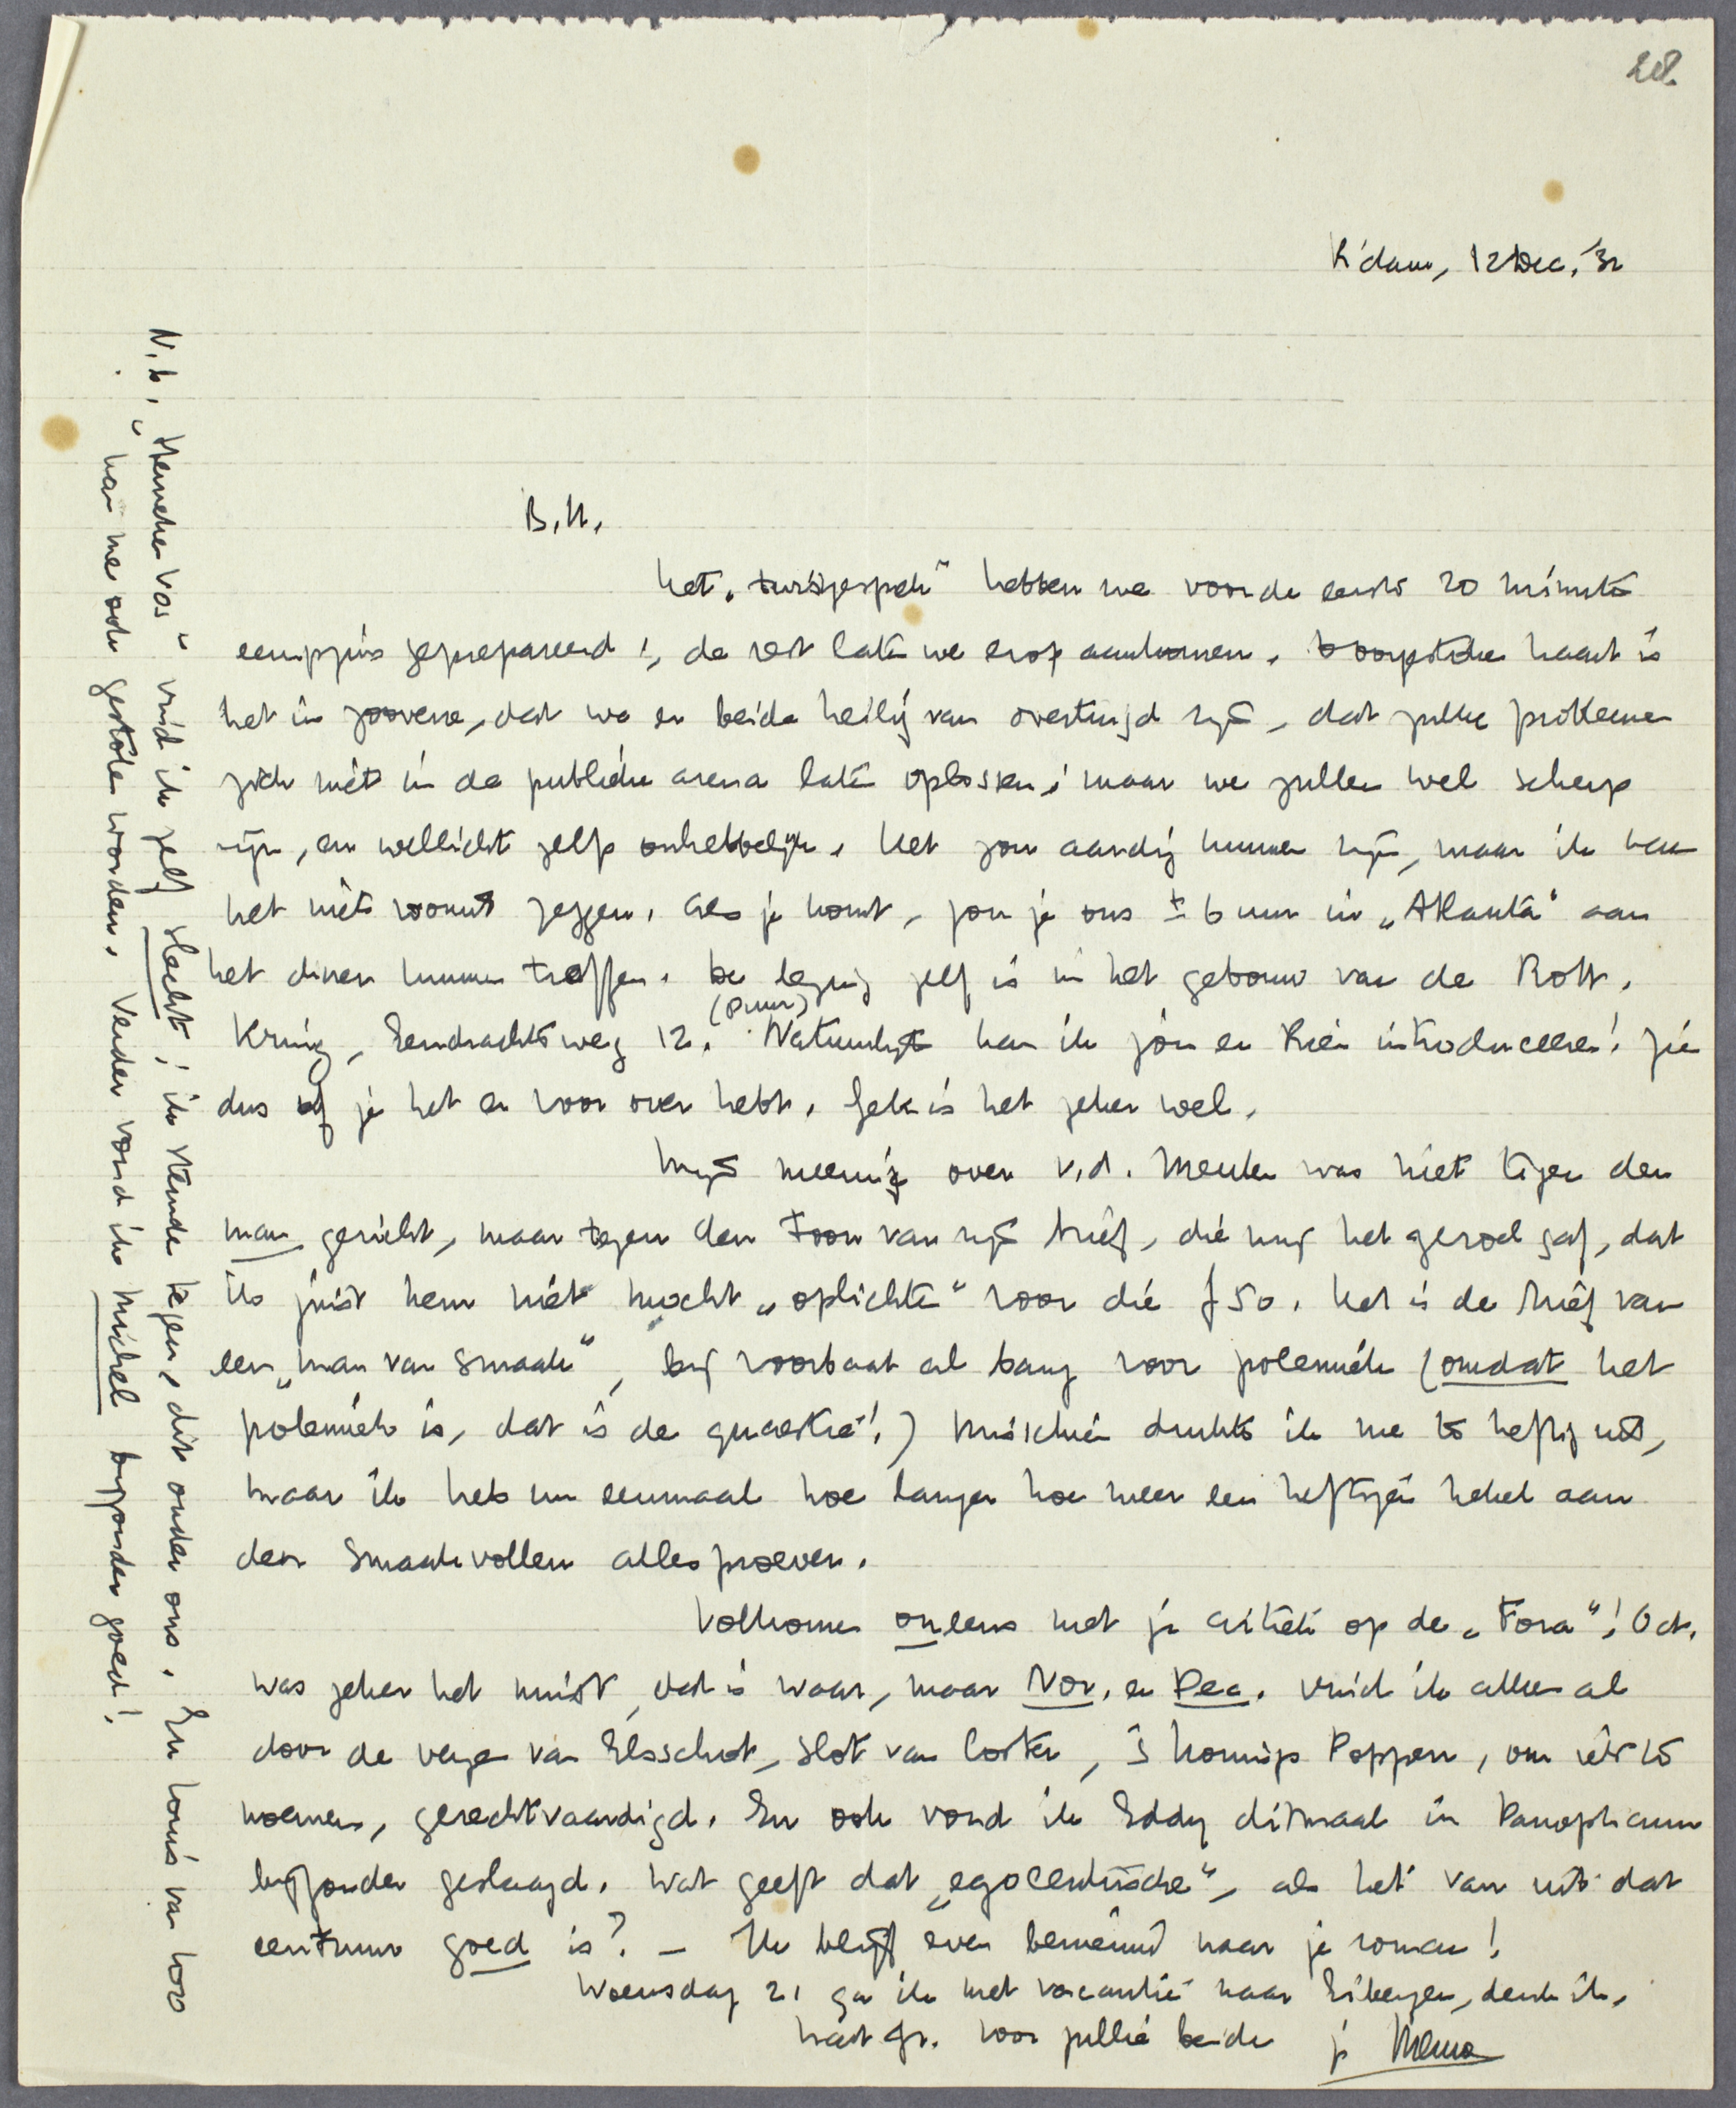 28.
R'dam, 12 Dec. '32
B.H.
Het „twistgesprek" hebben we voor de eerste 20 minuten
eenigszins geprepareerd; de rest laten we erop aankomen. Voorzitter Kraat is
het in zooverre, dat we er beide heilig van overtuigd zijn, dat zulke problemen
zich niet in de publieke arena laten oplossen; maar we zullen wel scherp
zijn, en wellicht zelfs onhebbelijk. Het zou aardig kunnen zijn, maar ik kan
het niet vooruit zeggen. Als je komt, zou je ons ± 6 uur in „Atlanta" aan
het diner kunnen treffen. De lezing zelf is in het gebouw van de Rott.
Kring, Eendrachtsweg 12. (8 uur) Natuurlijk kan ik jou en Rien introduceeren! Zie
dus of je het er voor over hebt. Gek is het zeker wel.
Mijn meening over v.d. Meulen was niet tegen den
man gericht, maar tegen den toon van zijn brief, die mij het gevoel gaf, dat
ik juist hem niet mocht „oplichten" voor die f 50. Het is de brief van
een „man van smaak", bij voorbaat al bang voor polemiek (omdat het
polemiek is, dat is de quaestie!) Misschien drukte ik me te heftig uit,
maar ik heb nu eenmaal hoe langer hoe meer een heftigen hekel aan
den smaakvollen allesproever.
Volkomen oneens met je critiek op de „Fora"! Oct.
was zeker het minst, dat is waar, maar Nov. en Dec. vind ik alleen al
door de verzen van Elsschot, slot van Coster, 's Konings Poppen, om iets te
noemen, gerechtvaardigd. En ook vond ik Eddy ditmaal in Panopticum
bijzonder geslaagd. Wat geeft dat „egocentrische", als het van uit dat
centrum goed is? – Ik blijf even benieuwd naar je roman!
Woensdag 21 ga ik met vacantie naar Eibergen, denk ik.
Hart. gr. voor jullie beide je Menno
N.b. „Henneke Vos" vind ik zelf slecht; ik stemde tegen, dit onder ons. En Louis van hoo
kan me ook gestolen worden. Verder vond ik Michel bijzonder goed!